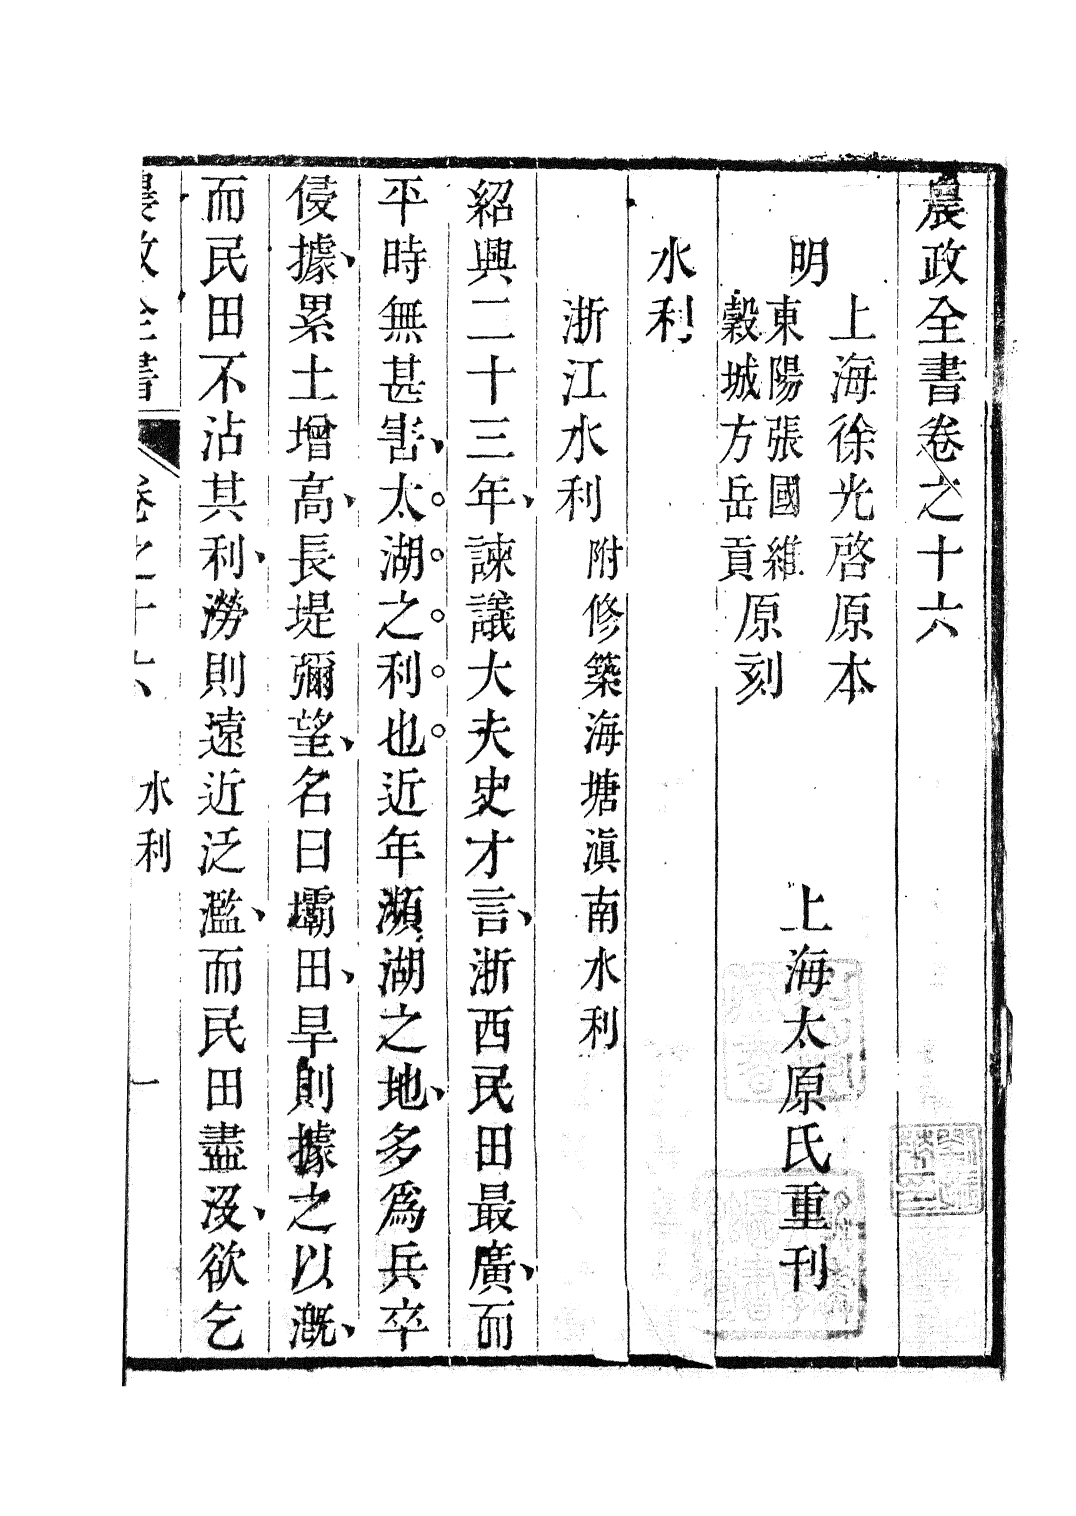 農政全書卷之十六
上海徐光啓原本
明
東陽張國維
穀城方岳貢
原刻
上海太原氏重刊
水利
浙江水利 附修築海塘滇南水利
紹興二十三年、諫議大夫史才言、浙西民田最廣、而
平時無甚害、太湖之利也。近年瀕湖之地、多爲兵卒
侵據、累土增高、長堤彌望、名曰壩田、旱則據之以溉、
而民田不沾其利、澇則遠近泛濫、而民田盡沒、欲乞
農政全書 卷之十六 水利 一